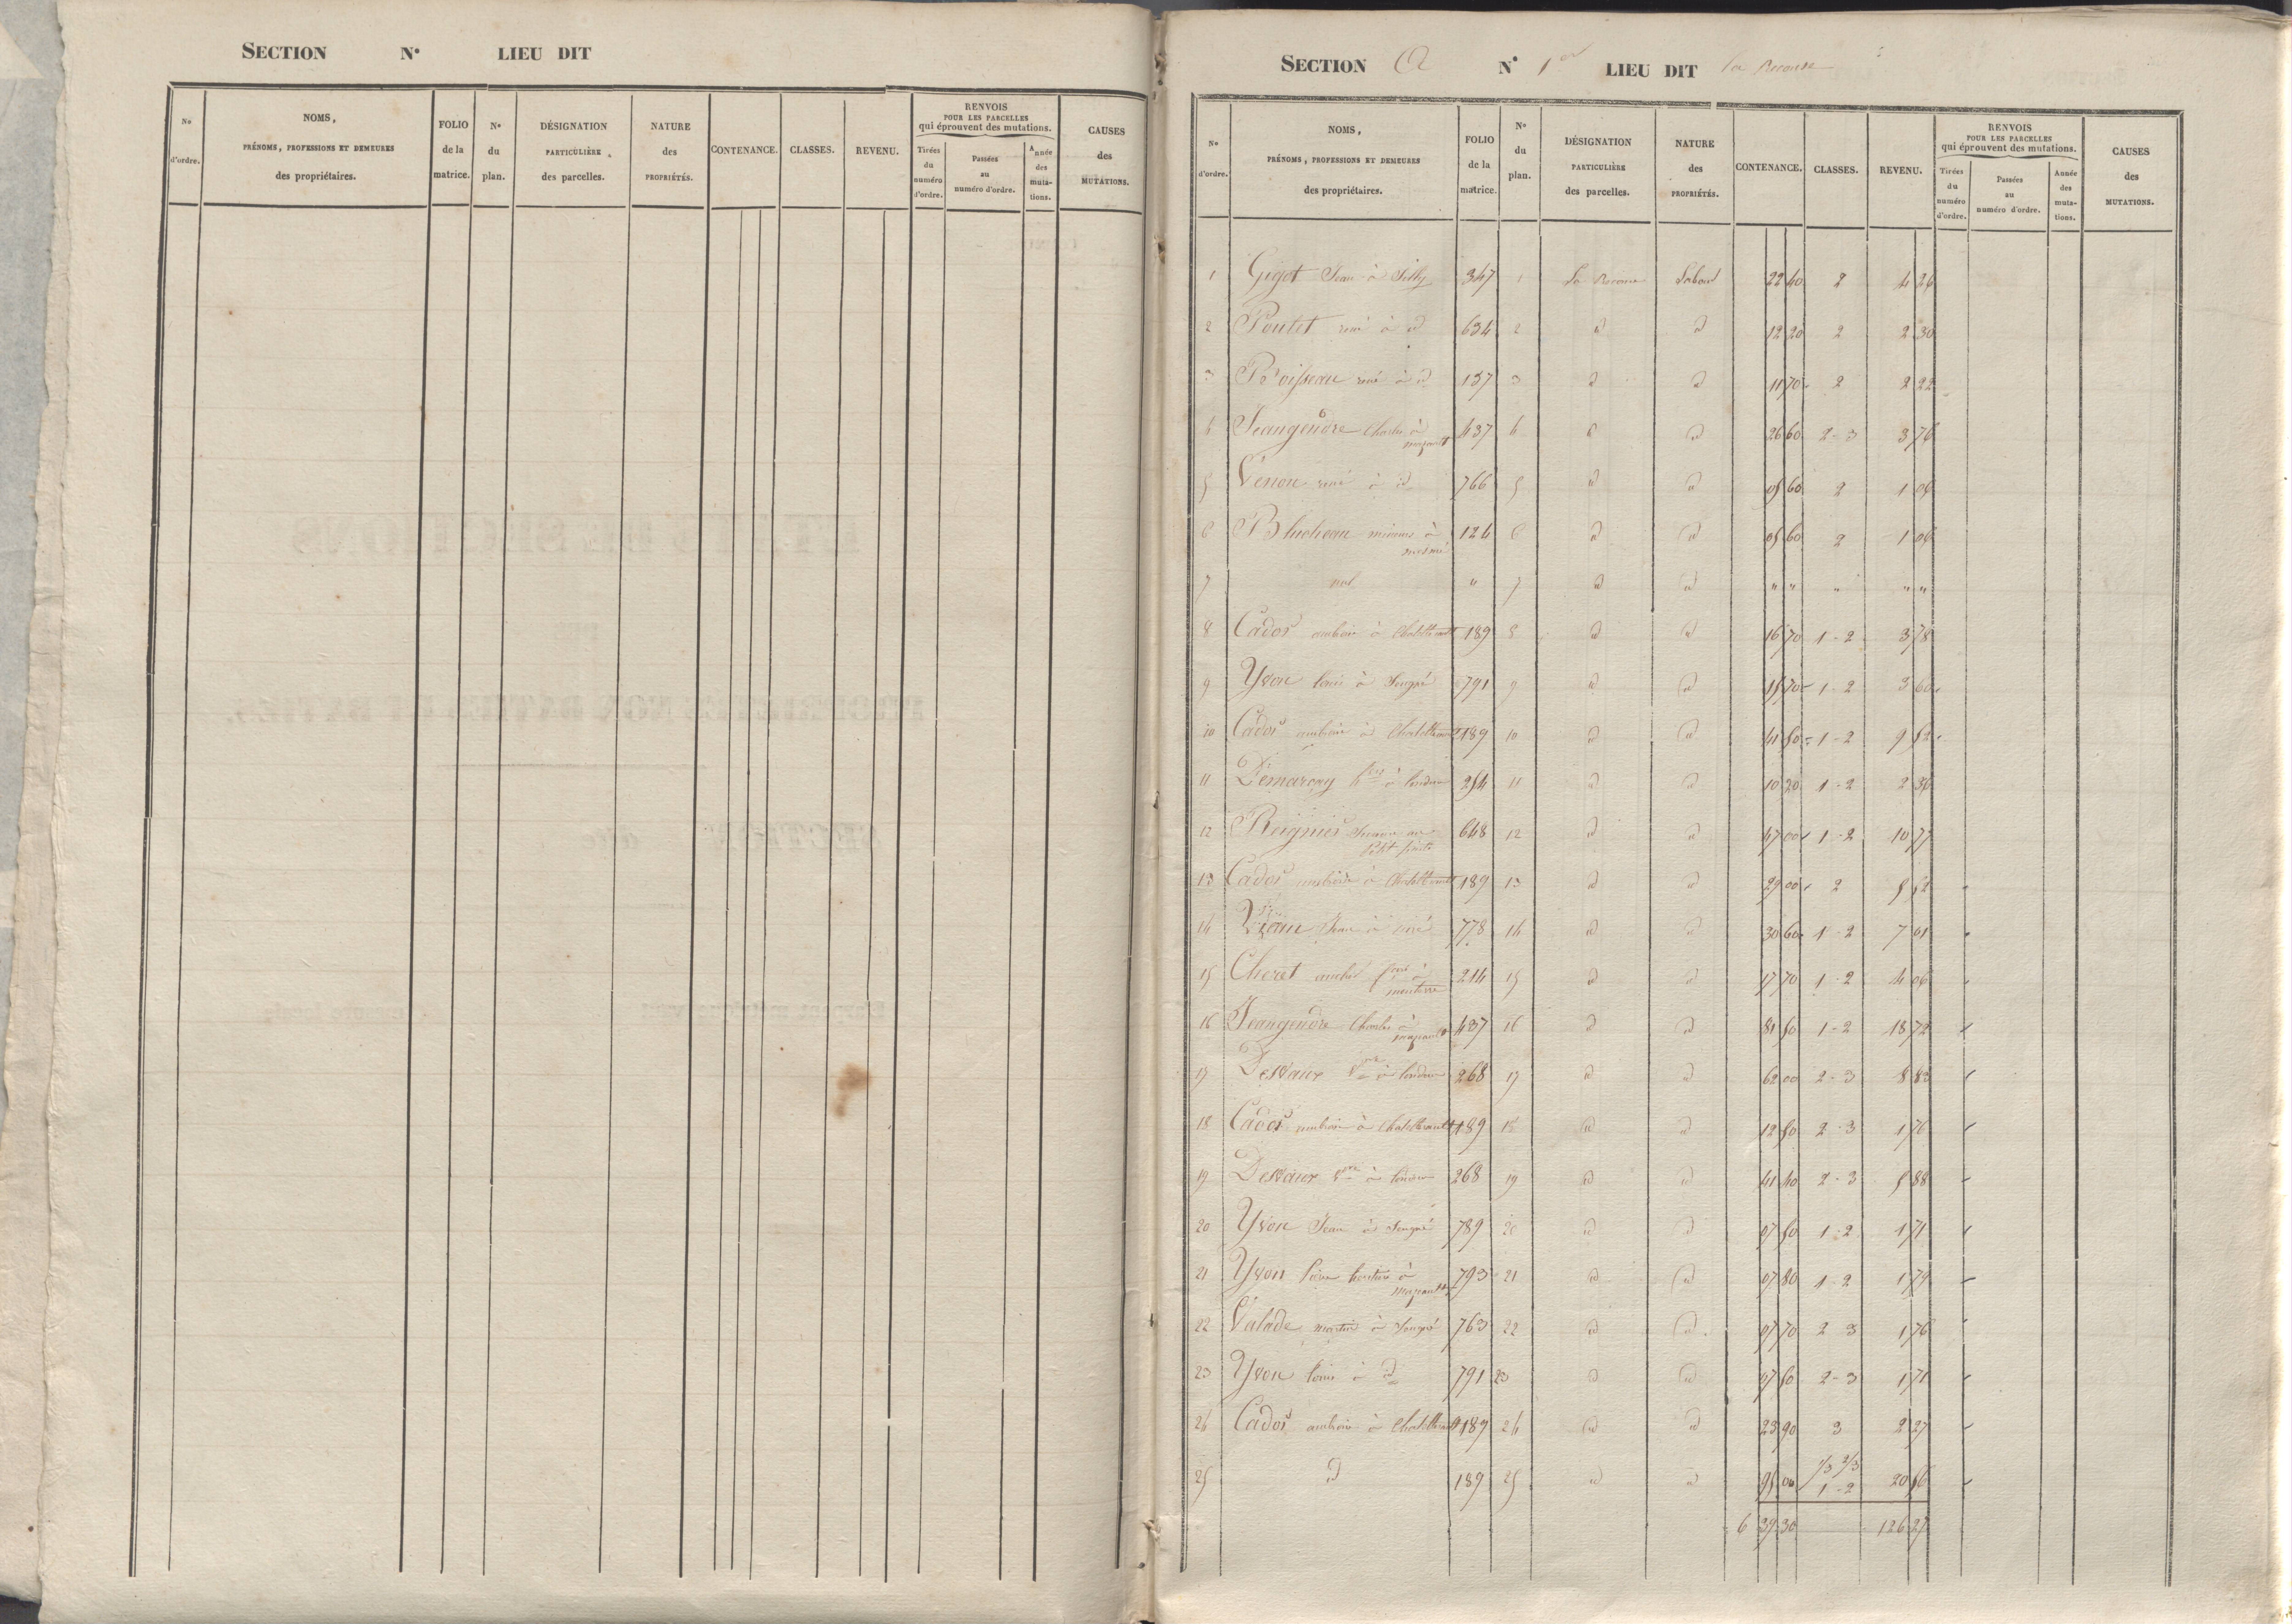 SECTION N° LIEU DIT
N° d'ordre.
NOMS, PRÉNOMS, PROFESSIONS ET DEMEURES des propriétaires.
FOLIO de la matrice.
N° du plan.
DÉSIGNATION PARTICULIÈRE des parcelles.
NATURE des PROPRIÉTÉS.
CONTENANCE.
CLASSES.
REVENU.
RENVOIS POUR LES PARCELLES qui éprouvent des mutations.
Tirées du numéro d'ordre.
Passées au numéro d'ordre.
Année des mutations.
CAUSES des MUTATIONS.
SECTION A N° 1er LIEU DIT la
N° d'ordre.
NOMS, PRÉNOMS, PROFESSIONS ET DEMEURES des propriétaires.
FOLIO de la matrice.
N° du plan.
DÉSIGNATION PARTICULIÈRE des parcelles.
NATURE des PROPRIÉTÉS.
CONTENANCE.
CLASSES.
REVENU.
RENVOIS POUR LES PARCELLES qui éprouvent des mutations.
Tirées du numéro d'ordre.
Passées au numéro d'ordre.
Année des mutations.
CAUSES des MUTATIONS.
1 Gigot Jean à 347 1 La Labour 22 40 2 4 26
2 Poutet rené à id 634 2 id id 12 20 2 2 30
3 rené à id 137 3 id id 11 70 2 2 22
4 Jeangendre Charles à 437 4 id id 26 60 2-3 3 76
5 Venon rené à id 766 5 id id 05 60 2 1 06
6 Bluteau à 124 6 id id 05 60 2 1 06
7 nul " 7 id id " " " " "
8 Cador ambroise à Chatellerault 189 8 id id 16 70 1-2 3 78
9 Yvon louis à 791 9 id id 15 70 1-2 3 60
10 Cador ambroise à Chatellerault 189 10 id id 41 50 1-2 9 52
11 Demarcay à loudun 254 11 id id 10 20 1-2 2 36
12 Reignier au petit 648 12 id id 47 00 1-2 10 77
13 Cador ambroise à Chatellerault 189 13 id id 29 00 2 5 52
14 Jean à 778 14 id id 30 60 1-2 7 01
15 Cheret à 214 15 id id 17 70 1-2 4 06
16 Jeangendre Charles à 437 16 id id 81 50 1-2 18 72
17 Desvaux à loudun 268 17 id id 62 00 2-3 8 83
18 Cador ambroise à Chatellerault 189 18 id id 12 50 2-3 1 76
19 Desvaux à loudun 268 19 id id 41 40 2-3 5 88
20 Yvon Jean à 789 20 id id 07 50 1-2 1 71
21 Yvon à 793 21 id id 07 80 1-2 1 79
22 Valade martin à 763 22 id id 07 70 2 3 1 76
23 Yvon louis à id 791 23 id id 07 50 2-3 1 71
24 Cador ambroise à Chatellerault 189 24 id id 23 90 3 2 27
25 id 189 25 id id 95 00 1/3 2/3 1-2 20 56
6 39 30 126 27